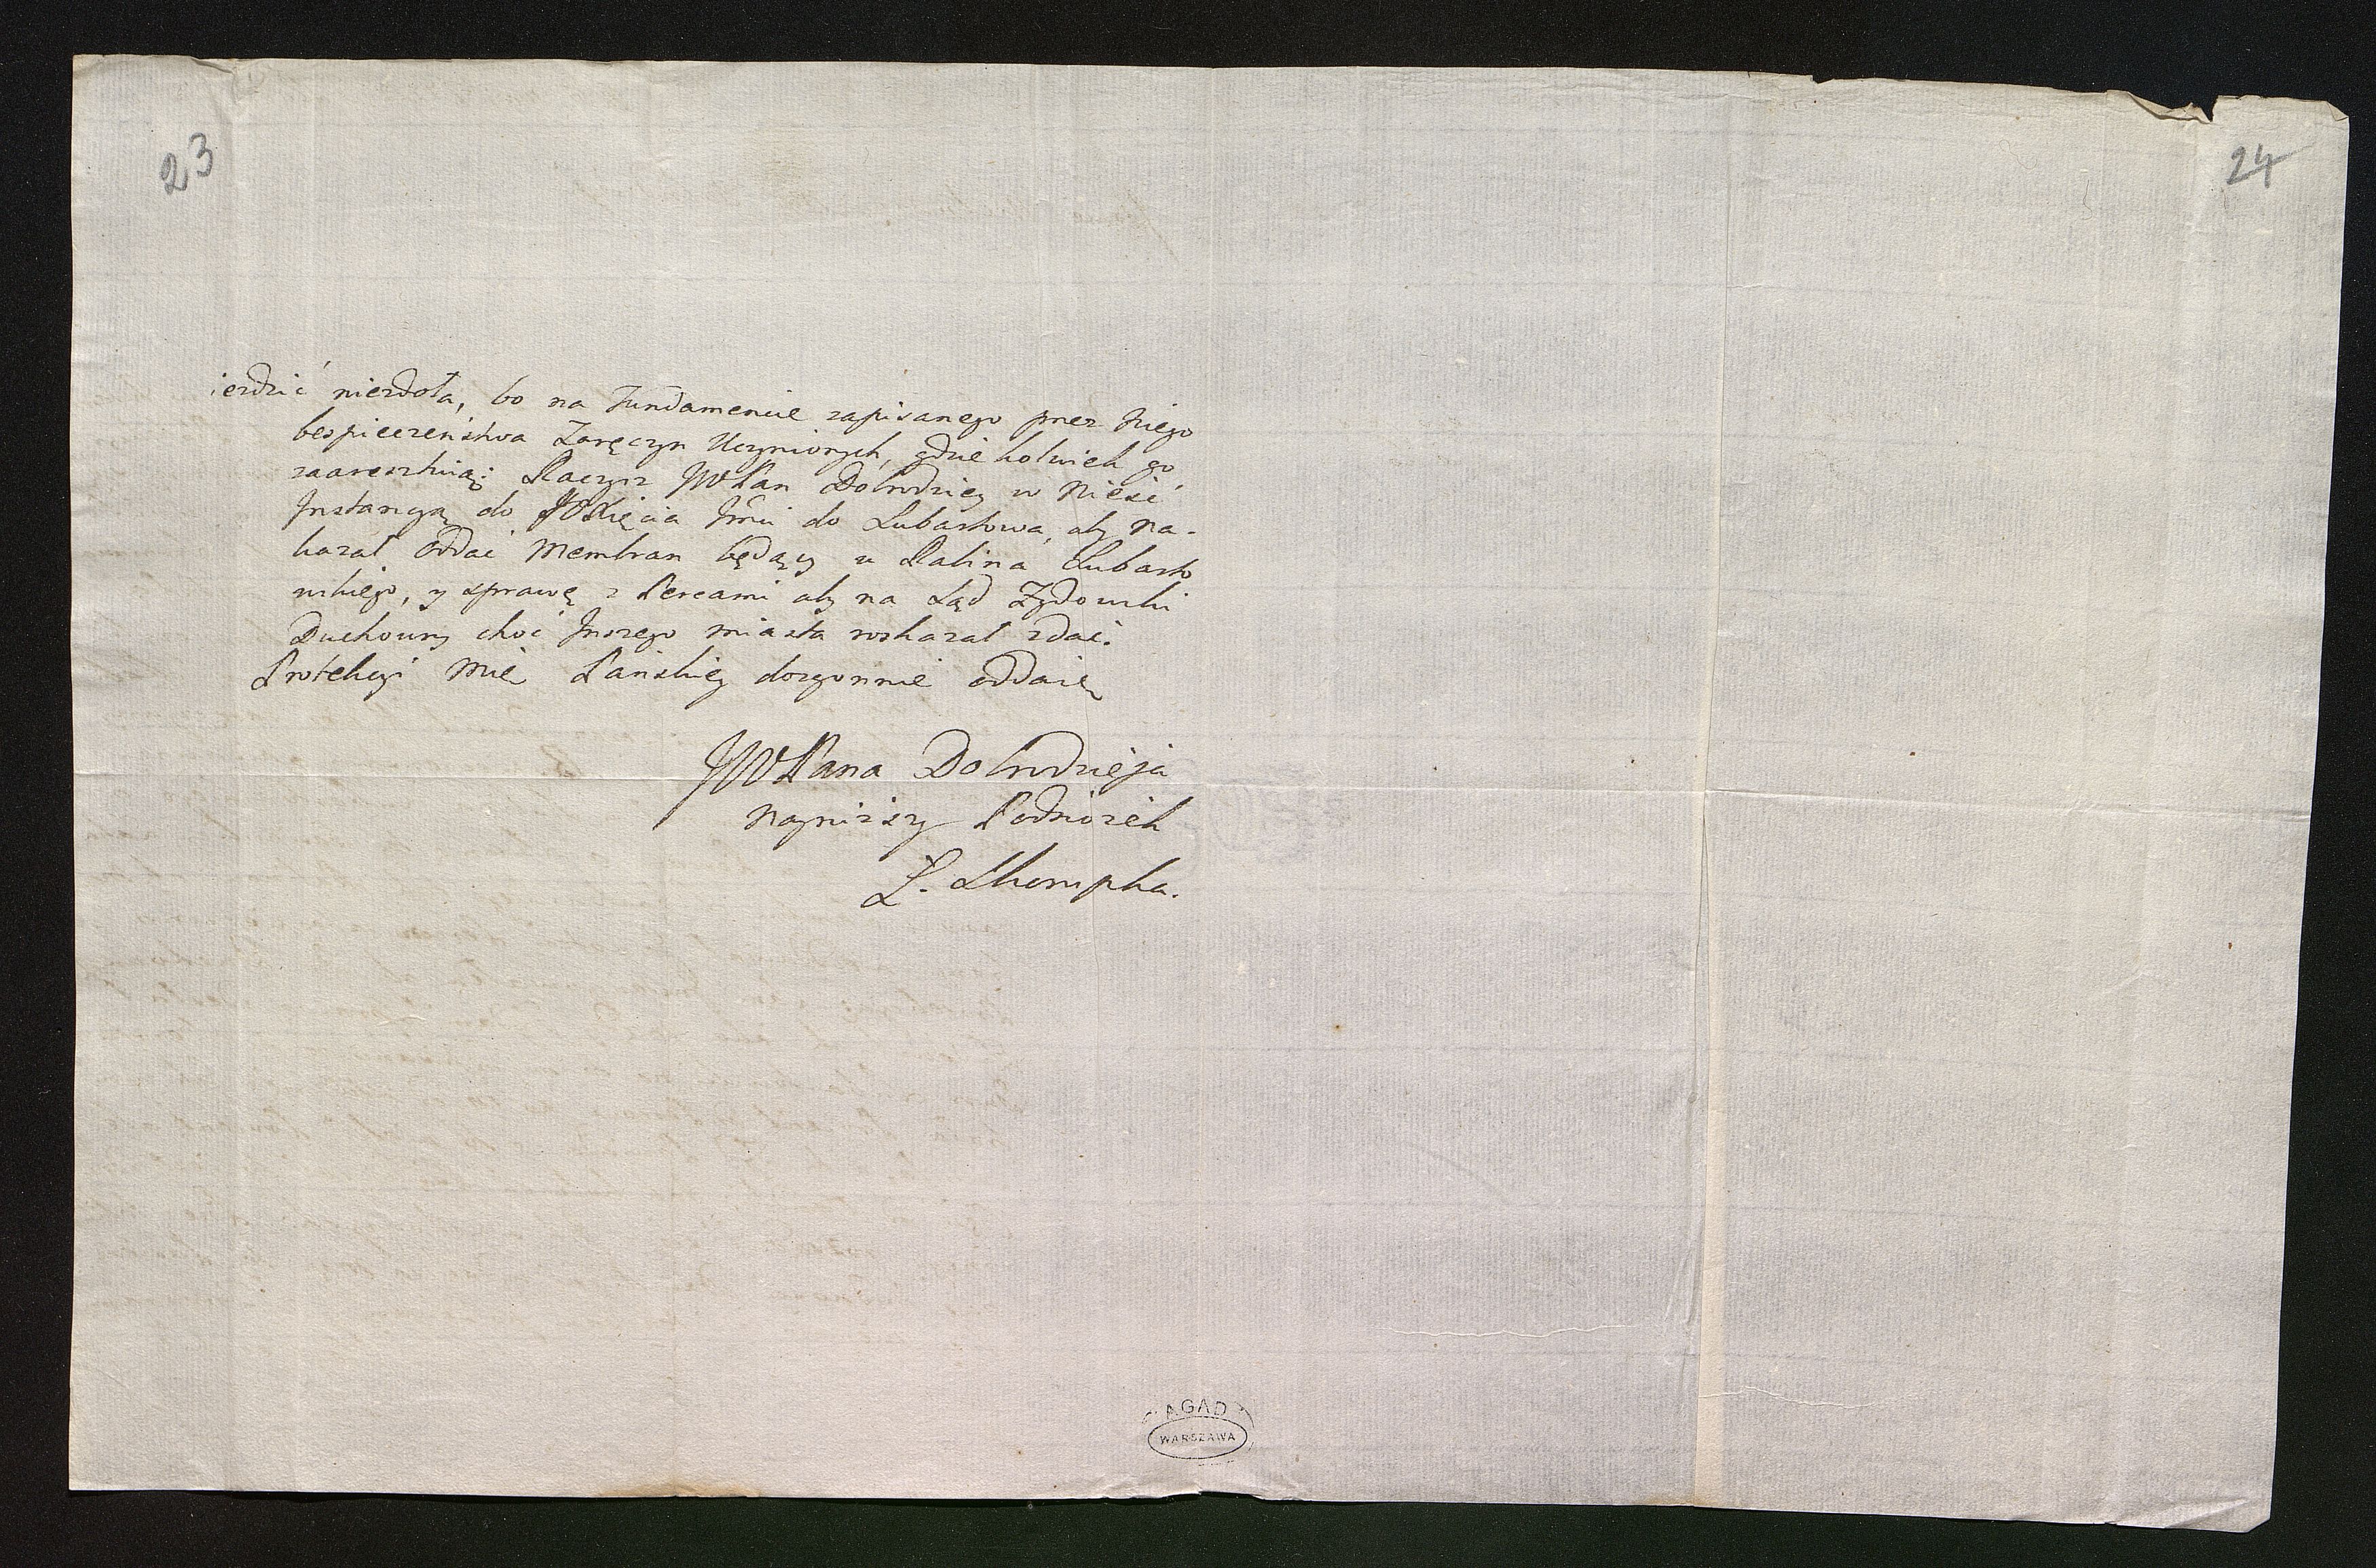 23
24
ierdzić niezdoła, bo na Fundamencie zapisanego przez Niego
bespieczeństwa Zaręczyn Uczynionych, gdzie kolwiek go
zaaresztuią: Raczysz JWPan Dobrodziey w nieść
Instancyą do JOXięcia Jmci do Lubartowa, aby na-
kazał oddać Membran będący u Rabina Lubarto
wskiego, y sprawę z Percami aby na Sąd Zydowski
Duchowny choć Inszego miasta roskazał zdać.
Protekcyi mię Pańskiey dozgonnie oddaię
JWPana Dobrodzieja
nayniższy Podnóżek
S. Skompka.
AGAD
WARSZAWA